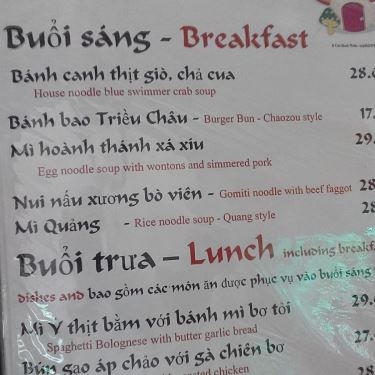 Buổi sáng - Breakfast
Bánh canh thịt giò, chả cua 28.
House noodle blue swimmer crab soup
Bánh bao Triều Châu - Burger Bun - Chaozou style 17.
Mì hoành thánh xá xíu 29.
Egg noodle soup with wontons and simmered pork
Nui nấu xương bò viên - Gomiti noodle with beef faggot 28
Mì Quảng - Rice noodle soup - Quang style 28
Buổi trưa – Lunch including breakfa
dishes and bao gồm các món ăn được phục vụ vào buổi sáng
Mì Ý thịt bằm với bánh mì bơ tỏi 29.
Spaghetti Bolognese with butter garlic bread 27.
Bún gạo áp chảo với gà chiên bơ
chicken 28